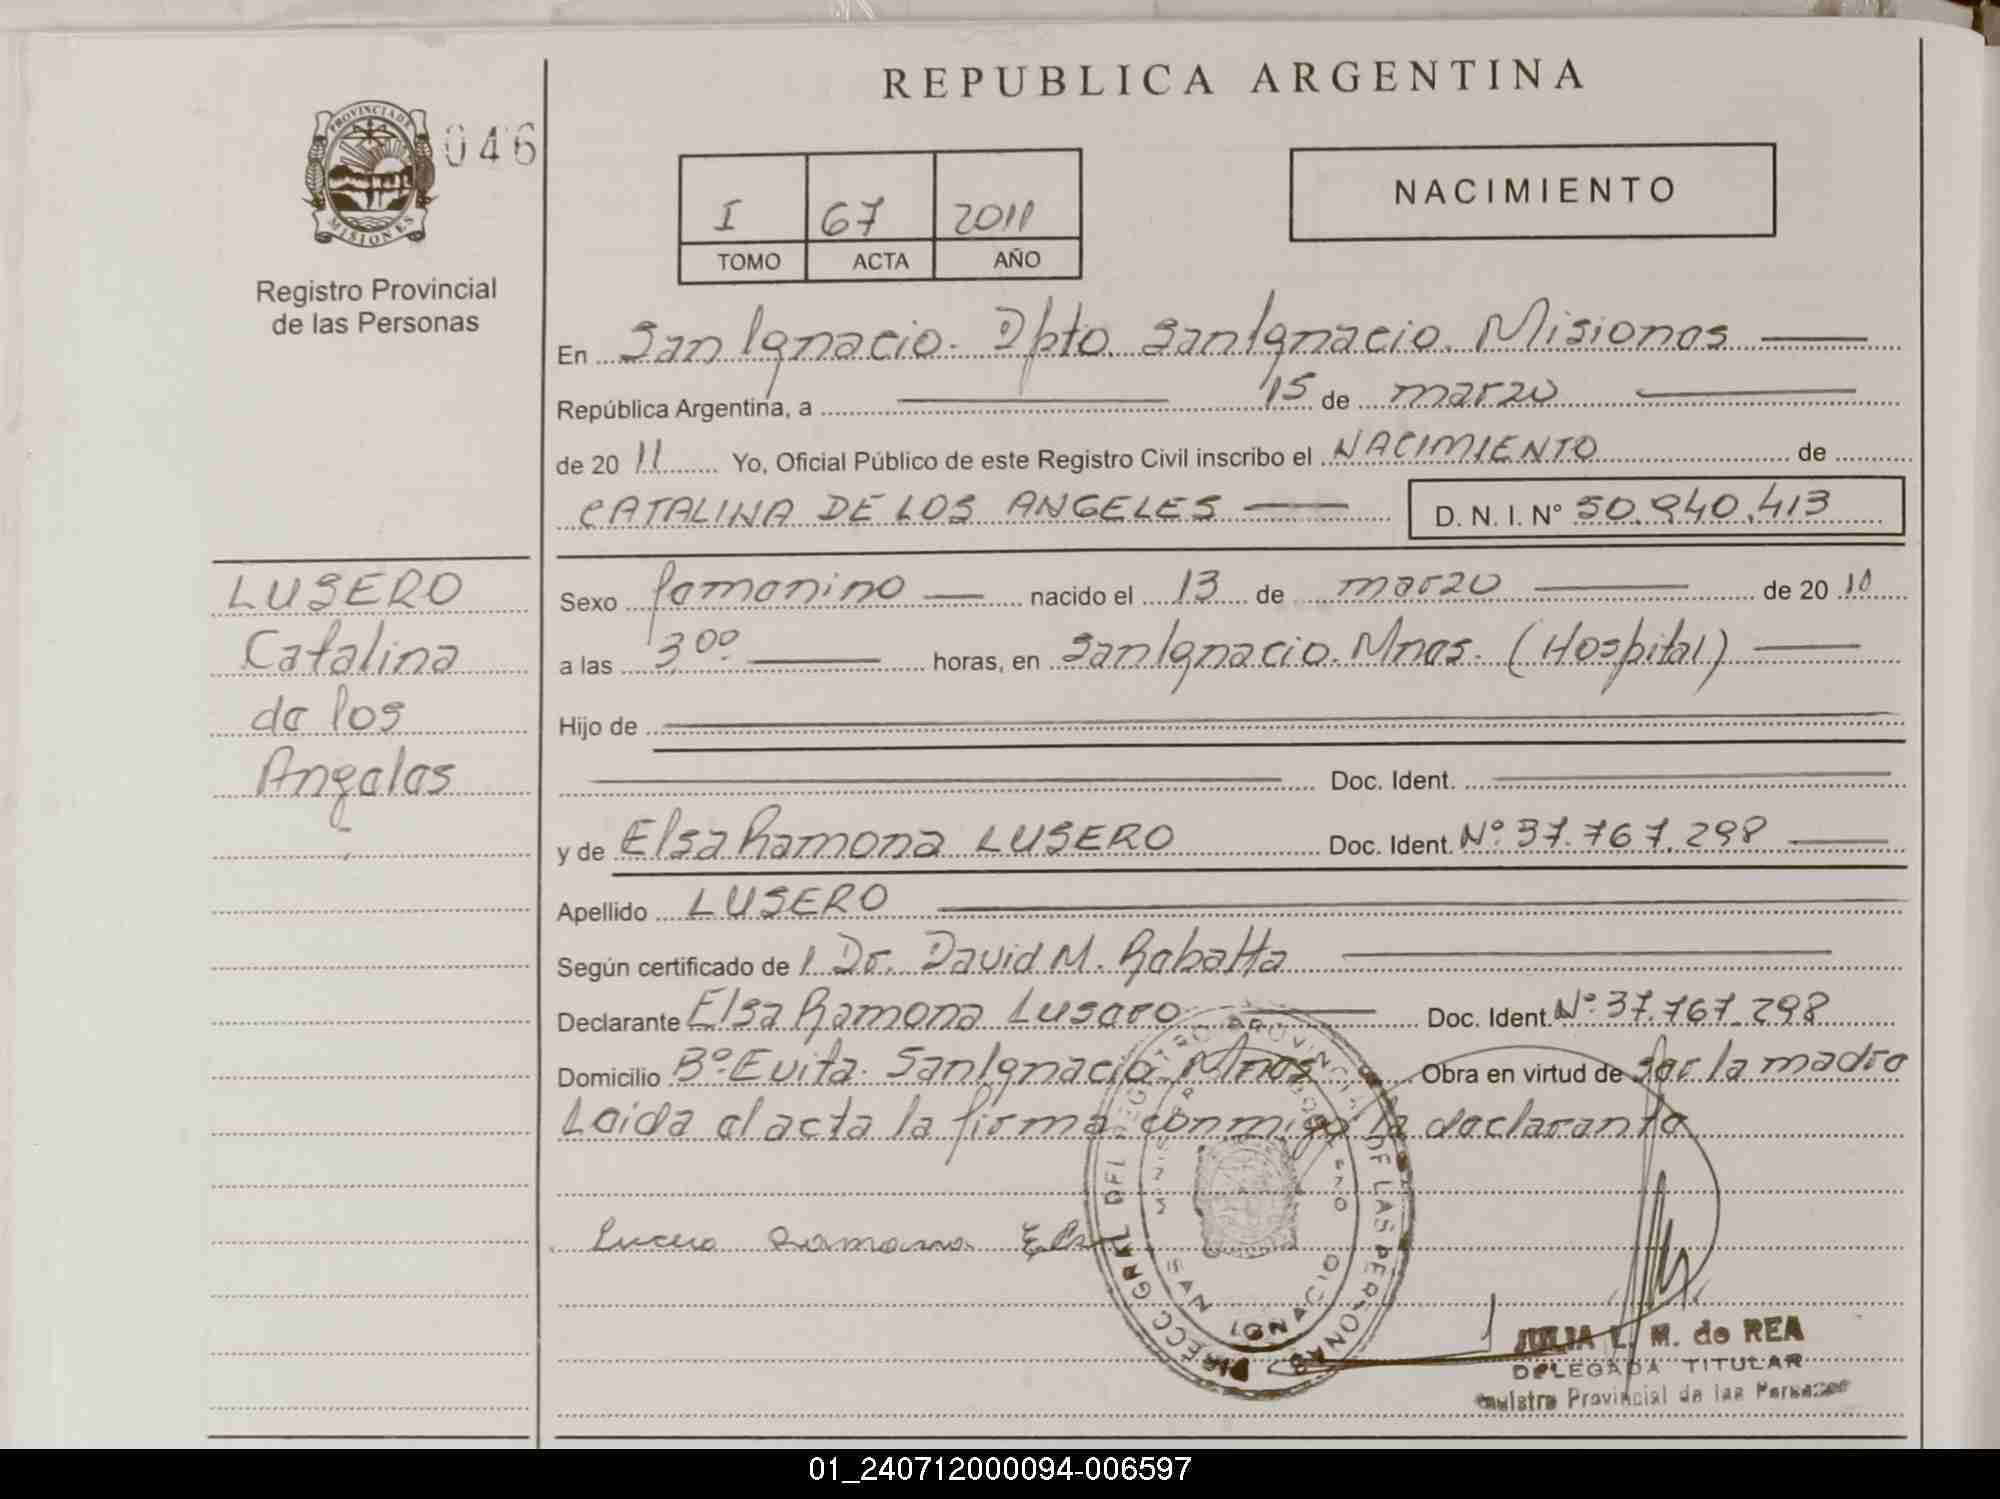 REPUBLICA ARGENTINA
PROVINCIA DE
MISIONES
046
Registro Provincial
de las Personas
I 67 2011
TOMO ACTA AÑO
NACIMIENTO
En San Ignacio. Dpto. San Ignacio. Misiones
República Argentina, a 15 de marzo
de 2011 Yo, Oficial Público de este Registro Civil inscribo el NACIMIENTO de
CATALINA DE LOS ANGELES D. N. I. N° 50.940.413
LUSERO
Catalina
de los
Angeles
Sexo femenino nacido el 13 de marzo de 2010
a las 3⁰⁰ horas, en San Ignacio. Mnes. (Hospital)
Hijo de
Doc. Ident.
y de Elsa Ramona LUSERO Doc. Ident. Nº 37.767.298
Apellido LUSERO
Según certificado de l Dr. David M. Rabatta
Declarante Elsa Ramona Lusero Doc. Ident. Nº 37.767.298
Domicilio Bº Evita. San Ignacio Mnes Obra en virtud de ser la madre
Leida el acta la firma conmigo la declarante
Ramona
DIRECC GRAL DEL REGISTRO PROVINCIAL DE LAS PERSONAS
SAN IGNACIO
JULIA L. M. de REA
DELEGADA TITULAR
Registro Provincial de las Personas
01_240712000094-006597